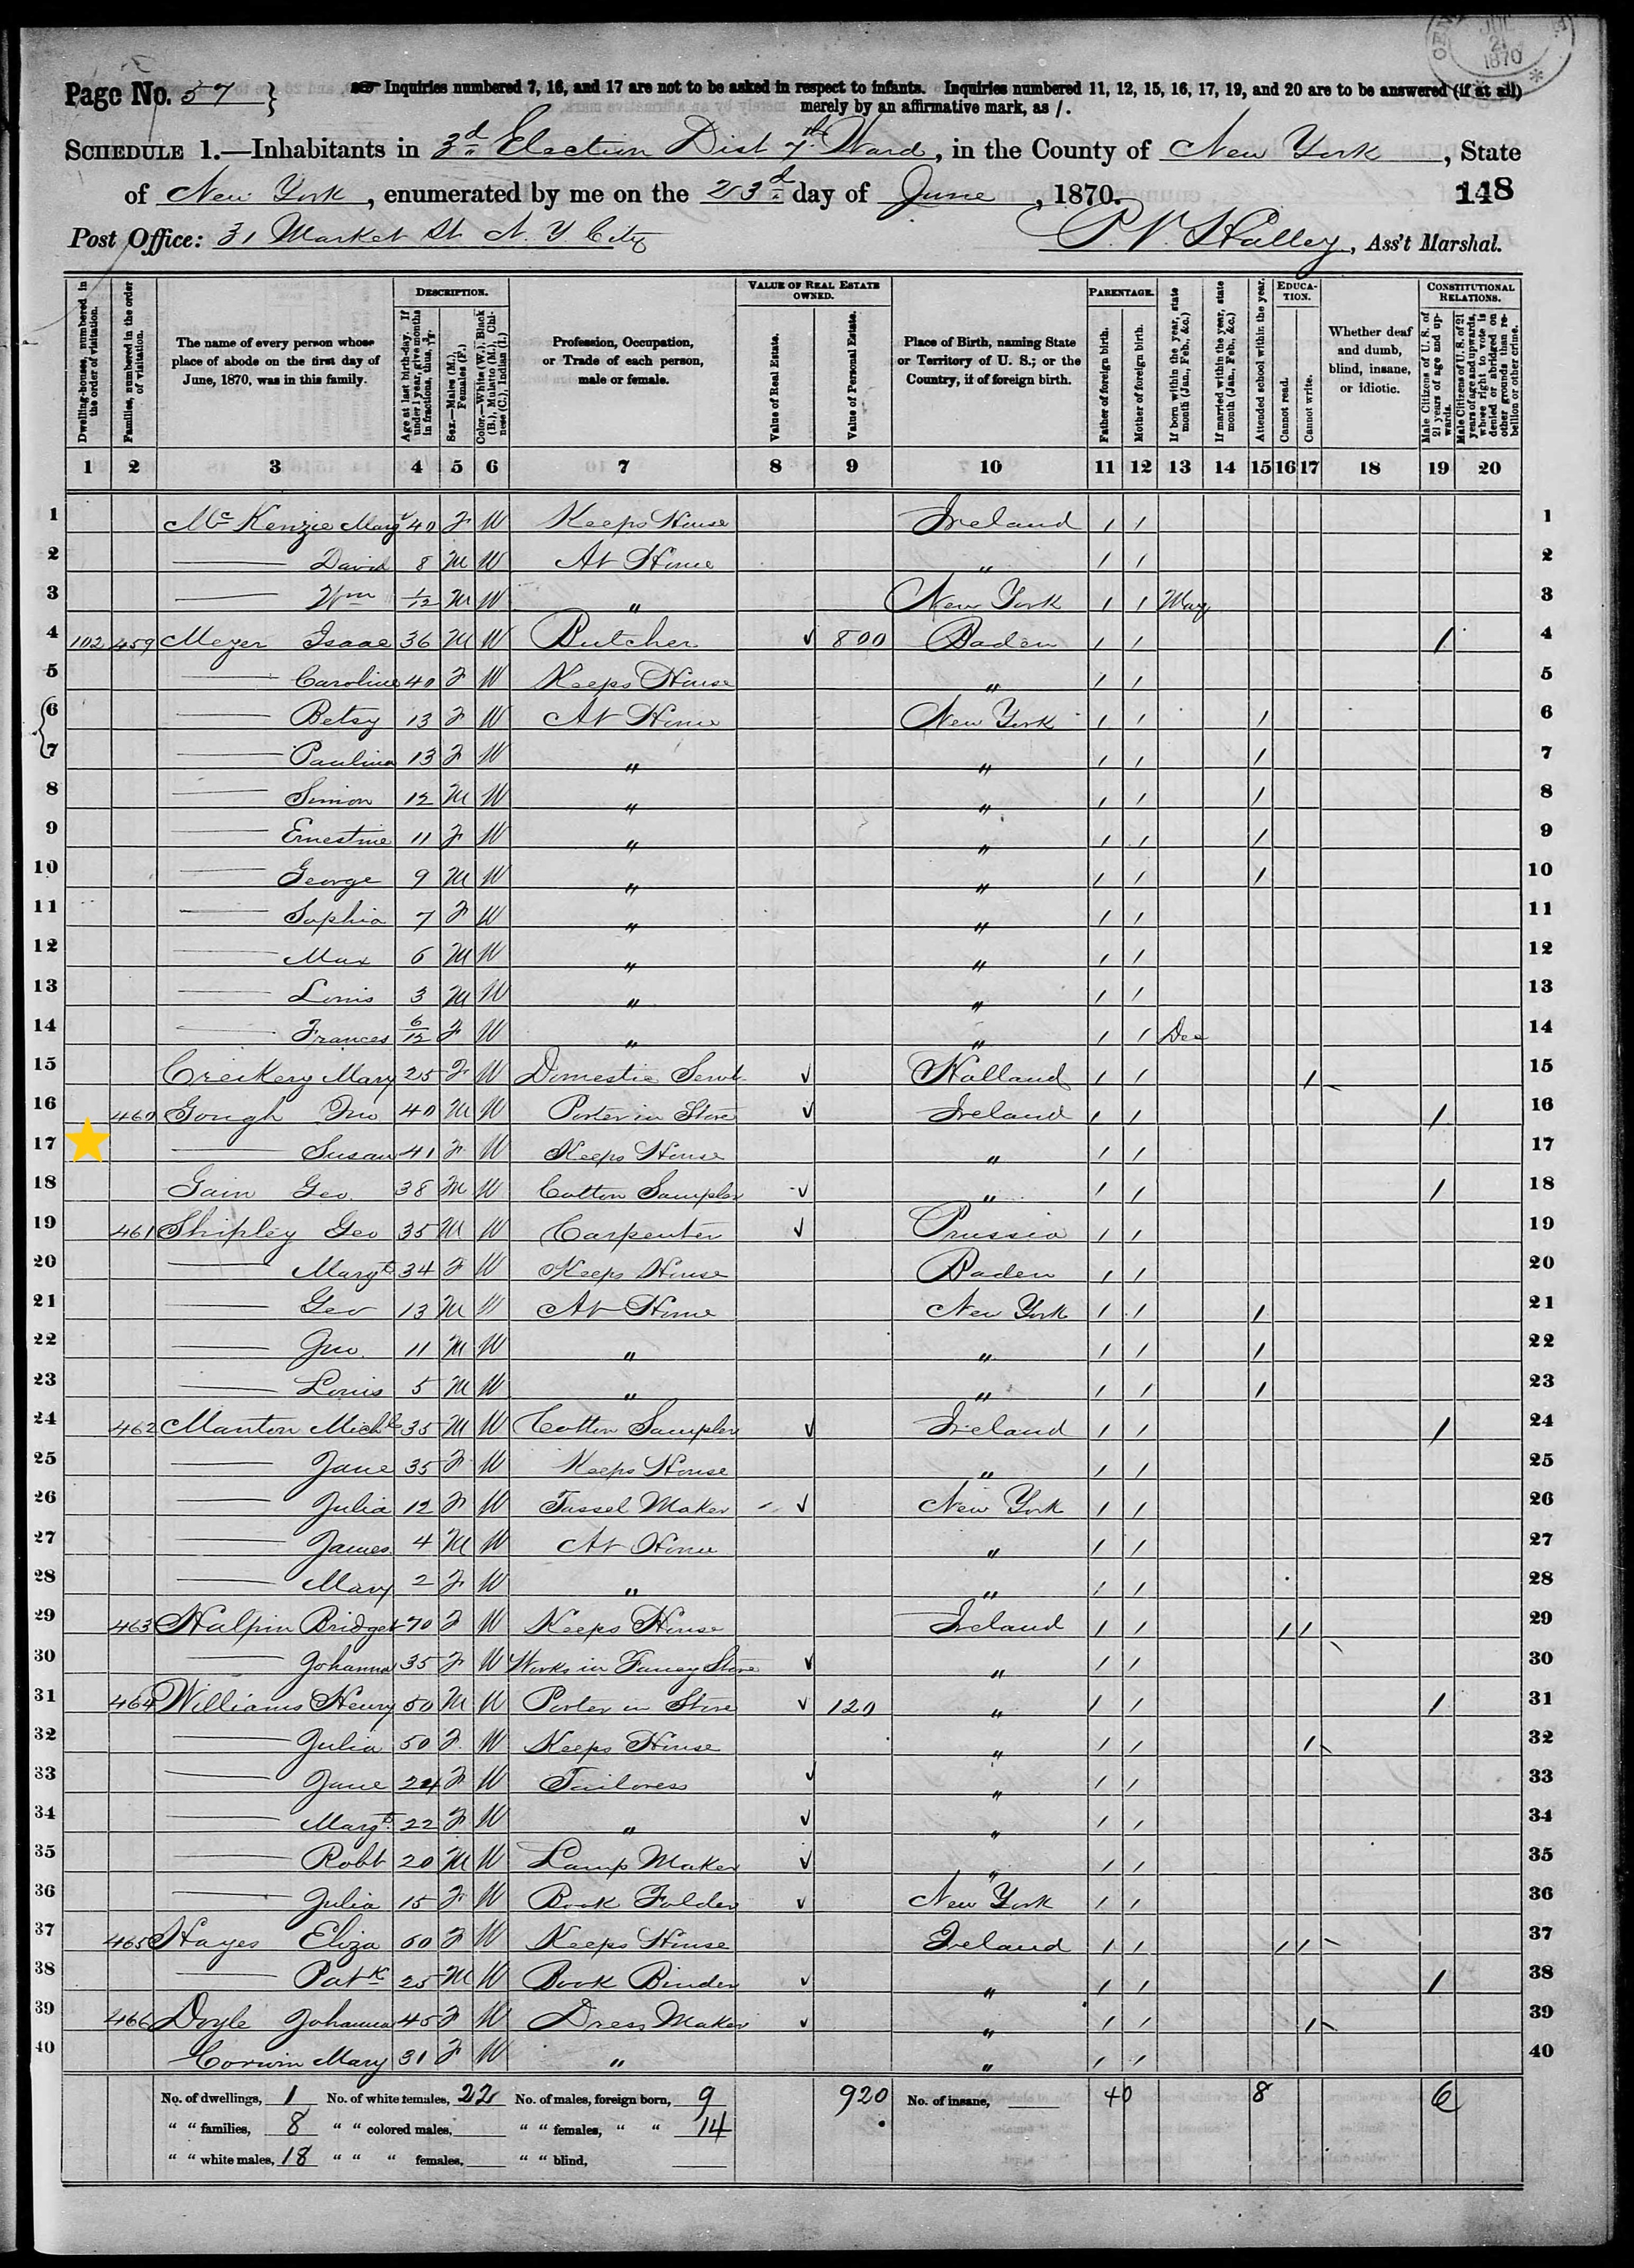 JUL 21 1870
Page No. 57 } Inquiries numbered 7, 16, and 17 are not to be asked in respect to infants. Inquiries numbered 11, 12, 15, 16, 17, 19, and 20 are to be answered (if at all)
merely by an affirmative mark, as /.
SCHEDULE 1.—Inhabitants in 3d Election Dist 7th Ward, in the County of New York, State
of New York, enumerated by me on the 23d day of June, 1870. 148
Post Office: 31 Market St N. Y City P. V. Halley, Ass't Marshal.
Dwelling-houses, numbered in the order of visitation.
Families, numbered in the order of visitation.
The name of every person whose place of abode on the first day of June, 1870, was in this family.
DESCRIPTION.
Age at last birth-day. If under 1 year, give months in fractions, thus, 3/12.
Sex.—Males (M.), Females (F.)
Color.—White (W.), Black (B.), Mulatto (M.), Chinese (C.), Indian (I.)
Profession, Occupation, or Trade of each person, male or female.
VALUE OF REAL ESTATE OWNED.
Value of Real Estate.
Value of Personal Estate.
Place of Birth, naming State or Territory of U. S.; or the Country, if of foreign birth.
PARENTAGE.
Father of foreign birth.
Mother of foreign birth.
If born within the year, state month (Jan., Feb., &c.)
If married within the year, state month (Jan., Feb., &c.)
Attended school within the year.
EDUCATION.
Cannot read.
Cannot write.
Whether deaf and dumb, blind, insane, or idiotic.
CONSTITUTIONAL RELATIONS.
Male Citizens of U. S. of 21 years of age and upwards.
Male Citizens of U. S. of 21 years of age and upwards, whose right to vote is denied or abridged on other grounds than rebellion or other crime.
1 2 3 4 5 6 7 8 9 10 11 12 13 14 15 16 17 18 19 20
1 McKenzie Margt 40 F W Keeps House Ireland / / 1
2 — David 8 M W At Home " / / 2
3 — Wm 1/12 M W " New York / / May 3
4 102 459 Meyer Isaac 36 M W Butcher ✓ 800 Baden / / / 4
5 — Caroline 40 F W Keeps House " / / 5
6 — Betsy 13 F W At Home New York / / / 6
7 — Paulina 13 F W " " / / / 7
8 — Simon 12 M W " " / / / 8
9 — Ernestine 11 F W " " / / / 9
10 — George 9 M W " " / / / 10
11 — Sophia 7 F W " " / / 11
12 — Max 6 M W " " / / 12
13 — Louis 3 M W " " / / 13
14 — Frances 6/12 F W " " / / Dec 14
15 Creikery Mary 25 F W Domestic Servt ✓ Holland / / / 15
16 460 Gough Jno 40 M W Porter in Store ✓ Ireland / / / 16
17 — Susan 41 F W Keeps House " / / 17
18 Gain Geo 38 M W Cotton Sampler ✓ " / / / 18
19 461 Shipley Geo 35 M W Carpenter ✓ Prussia / / 19
20 — Margt 34 F W Keeps House Baden / / 20
21 — Geo 13 M W At Home New York / / / 21
22 — Jno. 11 M W " " / / / 22
23 — Louis 5 M W " " / / / 23
24 462 Manton Michl 35 M W Cotton Sampler ✓ Ireland / / / 24
25 — Jane 35 F W Keeps House " / / 25
26 — Julia 12 F W Tassel Maker ✓ New York / / 26
27 — James 4 M W At Home " / / 27
28 — Mary 2 F W " " / / 28
29 463 Halpin Bridget 70 F W Keeps House Ireland / / / / 29
30 — Johanna 35 F W Works in Fancy Store ✓ " / / 30
31 464 Williams Henry 50 M W Porter in Store ✓ 120 " / / / 31
32 — Julia 50 F W Keeps House " / / / 32
33 — Jane 24 F W Tailoress ✓ " / / 33
34 — Margt 22 F W " ✓ " / / 34
35 — Robt 20 M W Lamp Maker ✓ " / / 35
36 — Julia 15 F W Book Folder ✓ New York / / 36
37 465 Hayes Eliza 60 F W Keeps House Ireland / / / / 37
38 — Patk 25 M W Book Binder ✓ " / / / 38
39 466 Doyle Johanna 45 F W Dress Maker ✓ " / / / 39
40 Corwin Mary 31 F W " " / / 40
No. of dwellings, 1 No. of white females, 22 No. of males, foreign born, 9 920 No. of insane, 40 8 6
" " families, 8 " " colored males, " " females, " " 14
" " white males, 18 " " " females, " " blind,